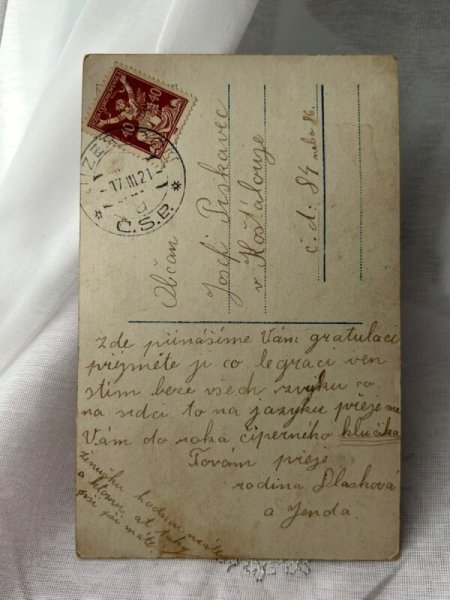 40 40
17.III.21
Č.S.P.
Občan
Josef Piskavec
v Košťálouze
č. d. 84 nebo 86.
zde přinásíme Vám gratulaci
prijměte ji co legraci ven
stim beze všech zvyku co
na srdci to na jazyku přejeme
Vám do roka čiperního klučíka
Továm přeje
rodina Dlasková
a Jenda.
ženušku hodnou máte
a ktomu at taky